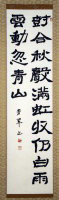 樹合秋聲滿虹收仍白雨
雲動忽青山